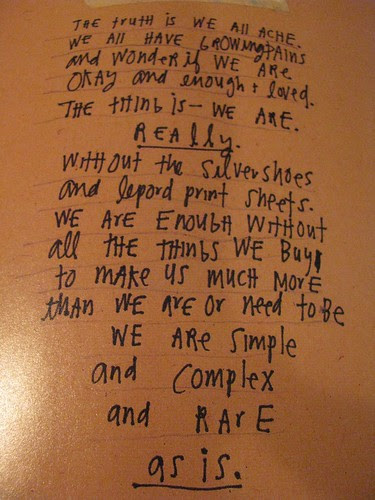 THE truth is WE All ACHE.
WE All HAVE GROWINGPAINS
and WONDER if WE ARE
OKAY and enough + loved.
THE tHING is — WE ARE.
REAlly.
WitHOUT the Silvershoes
and lepord print sheets.
WE ARE ENOUGH WitHOUt
all THE tHINGS WE Buy
to MAKE US MUCH MORE
tHAN WE ARE OR NEED to BE
WE ARE Simple
and COmplex
and RArE
as is.